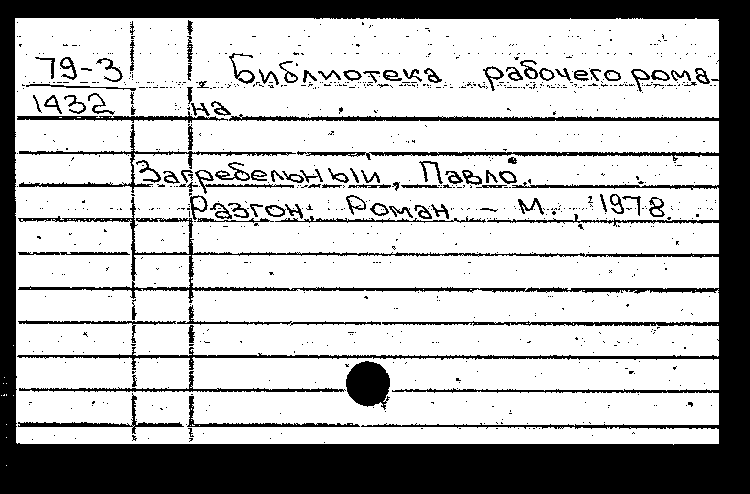 79-3 Библиотека рабочего рома-
1432 на.
Загребельный, Павло.
Разгон: Роман. - М., 1978.